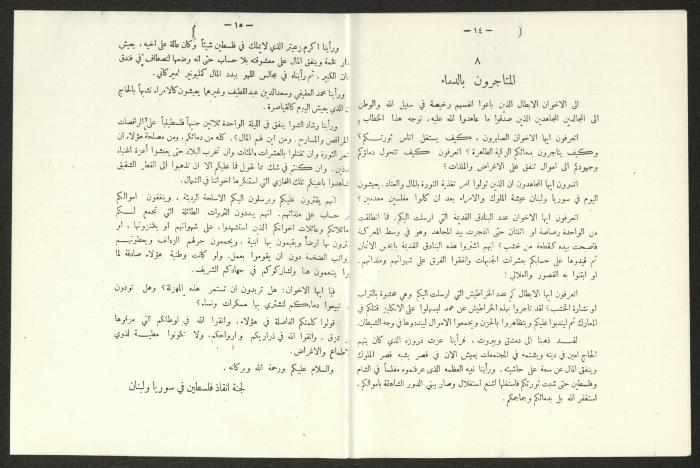 — ١٤ —
٨
المتاجرون بالدماء
الى الاخوان الابطال الذين باعوا انفسهم رخيصة في سبيل الله والوطن
الى المجاهدين الذين صدقوا ما عاهدوا الله عليه، نوجه هذا الخطاب :
اتعرفون ايها الاخوان الصابرون . كيف يستغل اناس ثورتكم ؟
وكيف يتاجرون بدمائكم الزكية الطاهرة ؟ اتعرفون كيف تتحول دماؤكم
وجهودكم الى اموال تنفق على الاغراض والملذات ؟
اتدرون ايها المجاهدون ان الذين تولوا امر تغذية الثورة بالمال والعتاد . يعيشون
اليوم في سوريا ولبنان عيشة الملوك والامراء بعد ان كانوا مفلسين معدمين ؟
اتعرفون ايها الاخوان عدد البنادق القديمة التي ارسلت اليكم . فما انطلقت
من الواحدة رصاصة او اثنتان حتى انفجرت بيد المجاهد وهو في وسط المعركة
فاصبحت بيده كقطعة من خشب ؟ انهم اشتروا هذه البنادق القديمة بابخس الاثمان
ثم قيدوها على حسابكم بعشرات الجنيهات وانفقوا الفرق على شهواتهم وملذاتهم .
او ابتنوا به القصور والعلالي !
اتعرفون ايها الابطال كم عدد الخراطيش التي ارسلت اليكم وهي محشوة بالتراب
او نشارة الخشب ؟ لقد تاجروا بهذه الخراطيش عن عمد ليسهلوا على الانكليز قتلكم في
المعارك ثم ليندبوا عليكم ويتظاهروا بالحزن ويجمعوا الاموال ليبددوها في وجه الشيطان.
لقد ذهبنا الى دمشق وبيروت . فرأينا عزت دروزه الذي كان يتهم
الحاج امين في دينه ويشتمه في المجتمعات يعيش الان في قصر يشبه قصر الملوك
وينفق المال عن سعة على حاشيته . ورأينا نبيه العظمه الذي عرفتموه مفلساً في الشام
وفلسطين حتى شبت ثورتكم فاستغلها اشنع استغلال وصار يبني الدور الشاهقة باموالكم .
استغفر الله بل بدمائكم وجماجمكم .
— ١٥ —
ورأينا اكرم زعيتر الذي لا يملك في فلسطين شيئاً وكان عالة على اخيه ، يعيش
فخمة وينفق المال على معشوقته بلا حساب حتى انه وضعها لتصطاف في فندق
الكبير . ثم رأيناه في مجالس اللهو يبدد المال كمليونير اميركاني .
ورأينا محمد العفيفي وسعد الدين عبد اللطيف وغيرهما يعيشون كالامراء تشبهاً بالحاج
الذي يعيش اليوم كالقياصرة .
ورأينا رشاد الشوا ينفق في الليلة الواحدة ثلاثين جنيهاً فلسطينياً على الراقصات
المراقص والمسارح . ومن اين لهم المال ؟. كله من دمائكم . ومن مصلحة هؤلاء ان
الثورة وان تقتلوا بالعشرات والمئات وان تخرب البلاد حتى يعيشوا أعزة اغنياء
وان كنتم في شك مما نقول فما عليكم الا ان تذهبوا الى القطر الشقيق
باعينكم تلك المخازي التي استنكرها اخواننا في الشمال.
انهم يقترون عليكم ويرسلون اليكم الاسلحة الرديئة ، وينفقون اموالكم
حساب على ملذاتهم . انهم يبددون الثروات الطائلة التي تجمع لكم
وعائلات اخوانكم الذين استشهدوا، على شهواتهم او يخزنونها ، او
بها ارضاً ويقيمون بها ابنية ، ويجمعون حولهم
الضخمة دون ان يقوموا بعمل. ولو كانت وطنية هؤلاء صادقة لما
يتنعمون هنا ولشاركوكم في جهادكم الشريف.
فيا ايها الاخوان : هل تريدون ان تستمر هذه المهزلة ؟ وهل تودون
تبيعوا دماءكم لتشترى بها مسكرات ونساء ؟
قولوا كلمتكم الفاصلة في هؤلاء، واتقوا الله في اوطانكم التي مزقوها
ممزق . واتقوا الله في ذراريكم وارواحكم . ولا تكونوا مطية لذوي
والاغراض.
والسلام عليكم ورحمة الله وبركاته .
لجنة انقاذ فلسطين في سوريا ولبنان